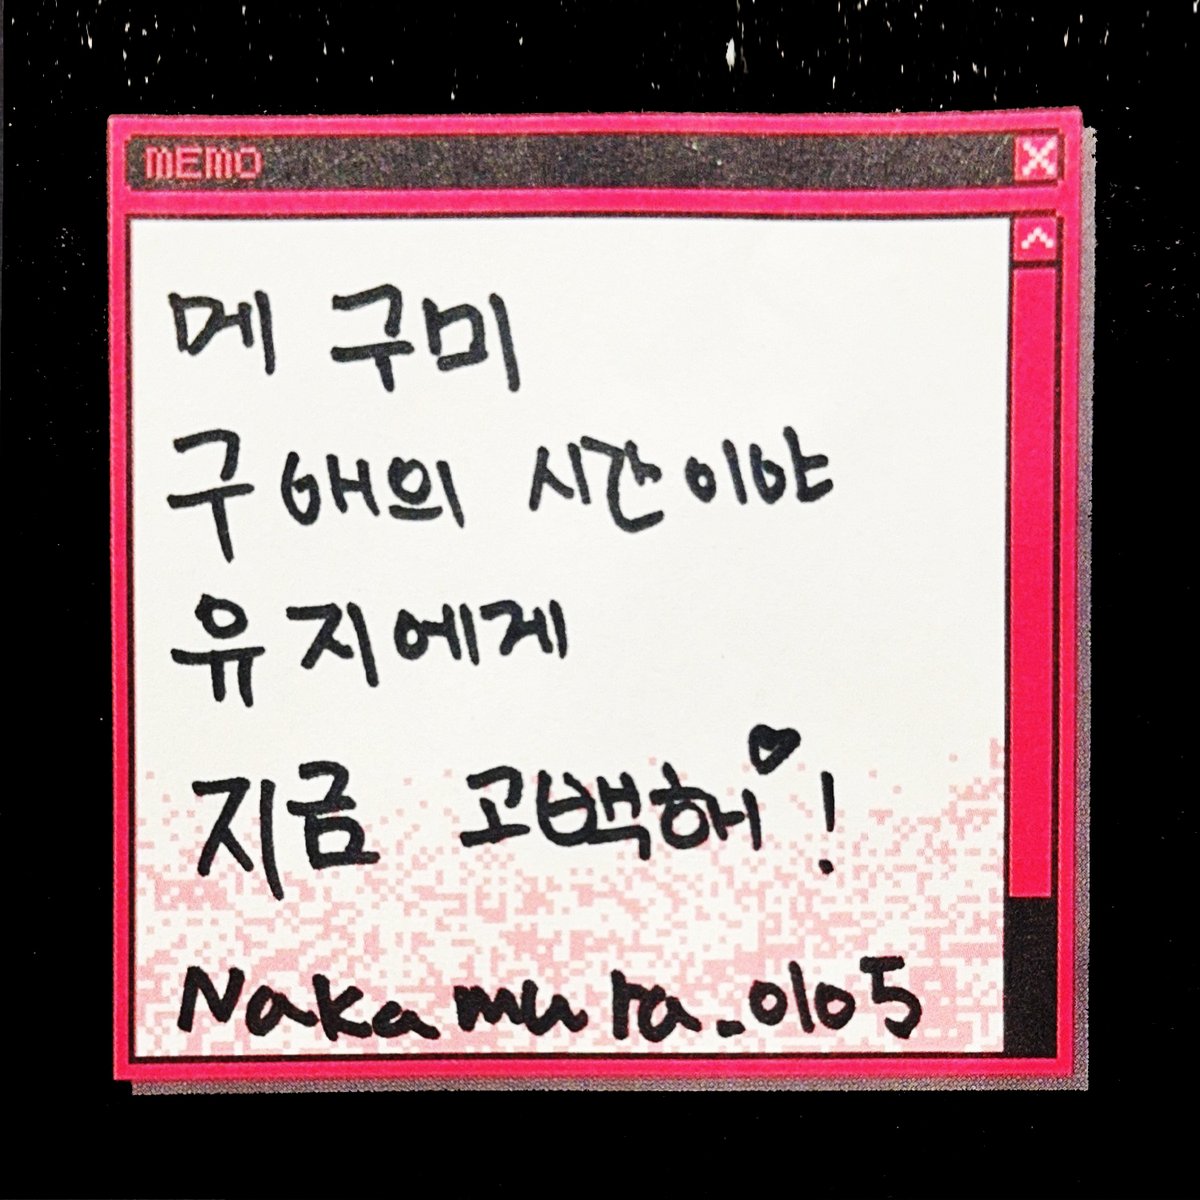 MEMO
메구미
구애의 시간이야
유지에게
지금 고백해♥!
Nakamura_0105